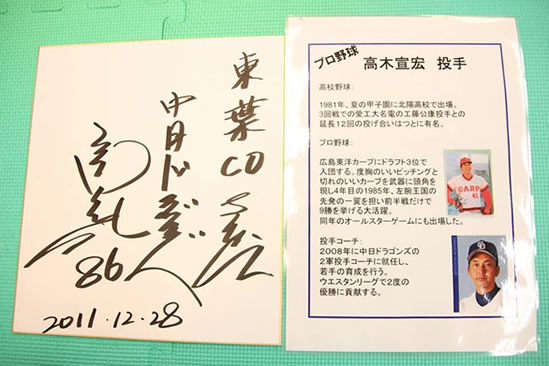 東葉CO
中日
86
2011.12.28
プロ野球
高木宣宏 投手
高校野球:
1981年、夏の甲子園に北陽高校で出場。
3回戦での愛工大名電の工藤公康投手との
延長12回の投げ合いはつとに有名。
プロ野球:
広島東洋カープにドラフト3位で
入団する。度胸のいいピッチングと
切れのいいカーブを武器に頭角を
現し4年目の1985年、左腕王国の
先発の一翼を担い前半戦だけで
9勝を挙げる大活躍。
同年のオールスターゲームにも出場した。
CARP
41
投手コーチ:
2008年に中日ドラゴンズの
2軍投手コーチに就任し、
若手の育成を行う。
ウエスタンリーグで2度の
優勝に貢献する。